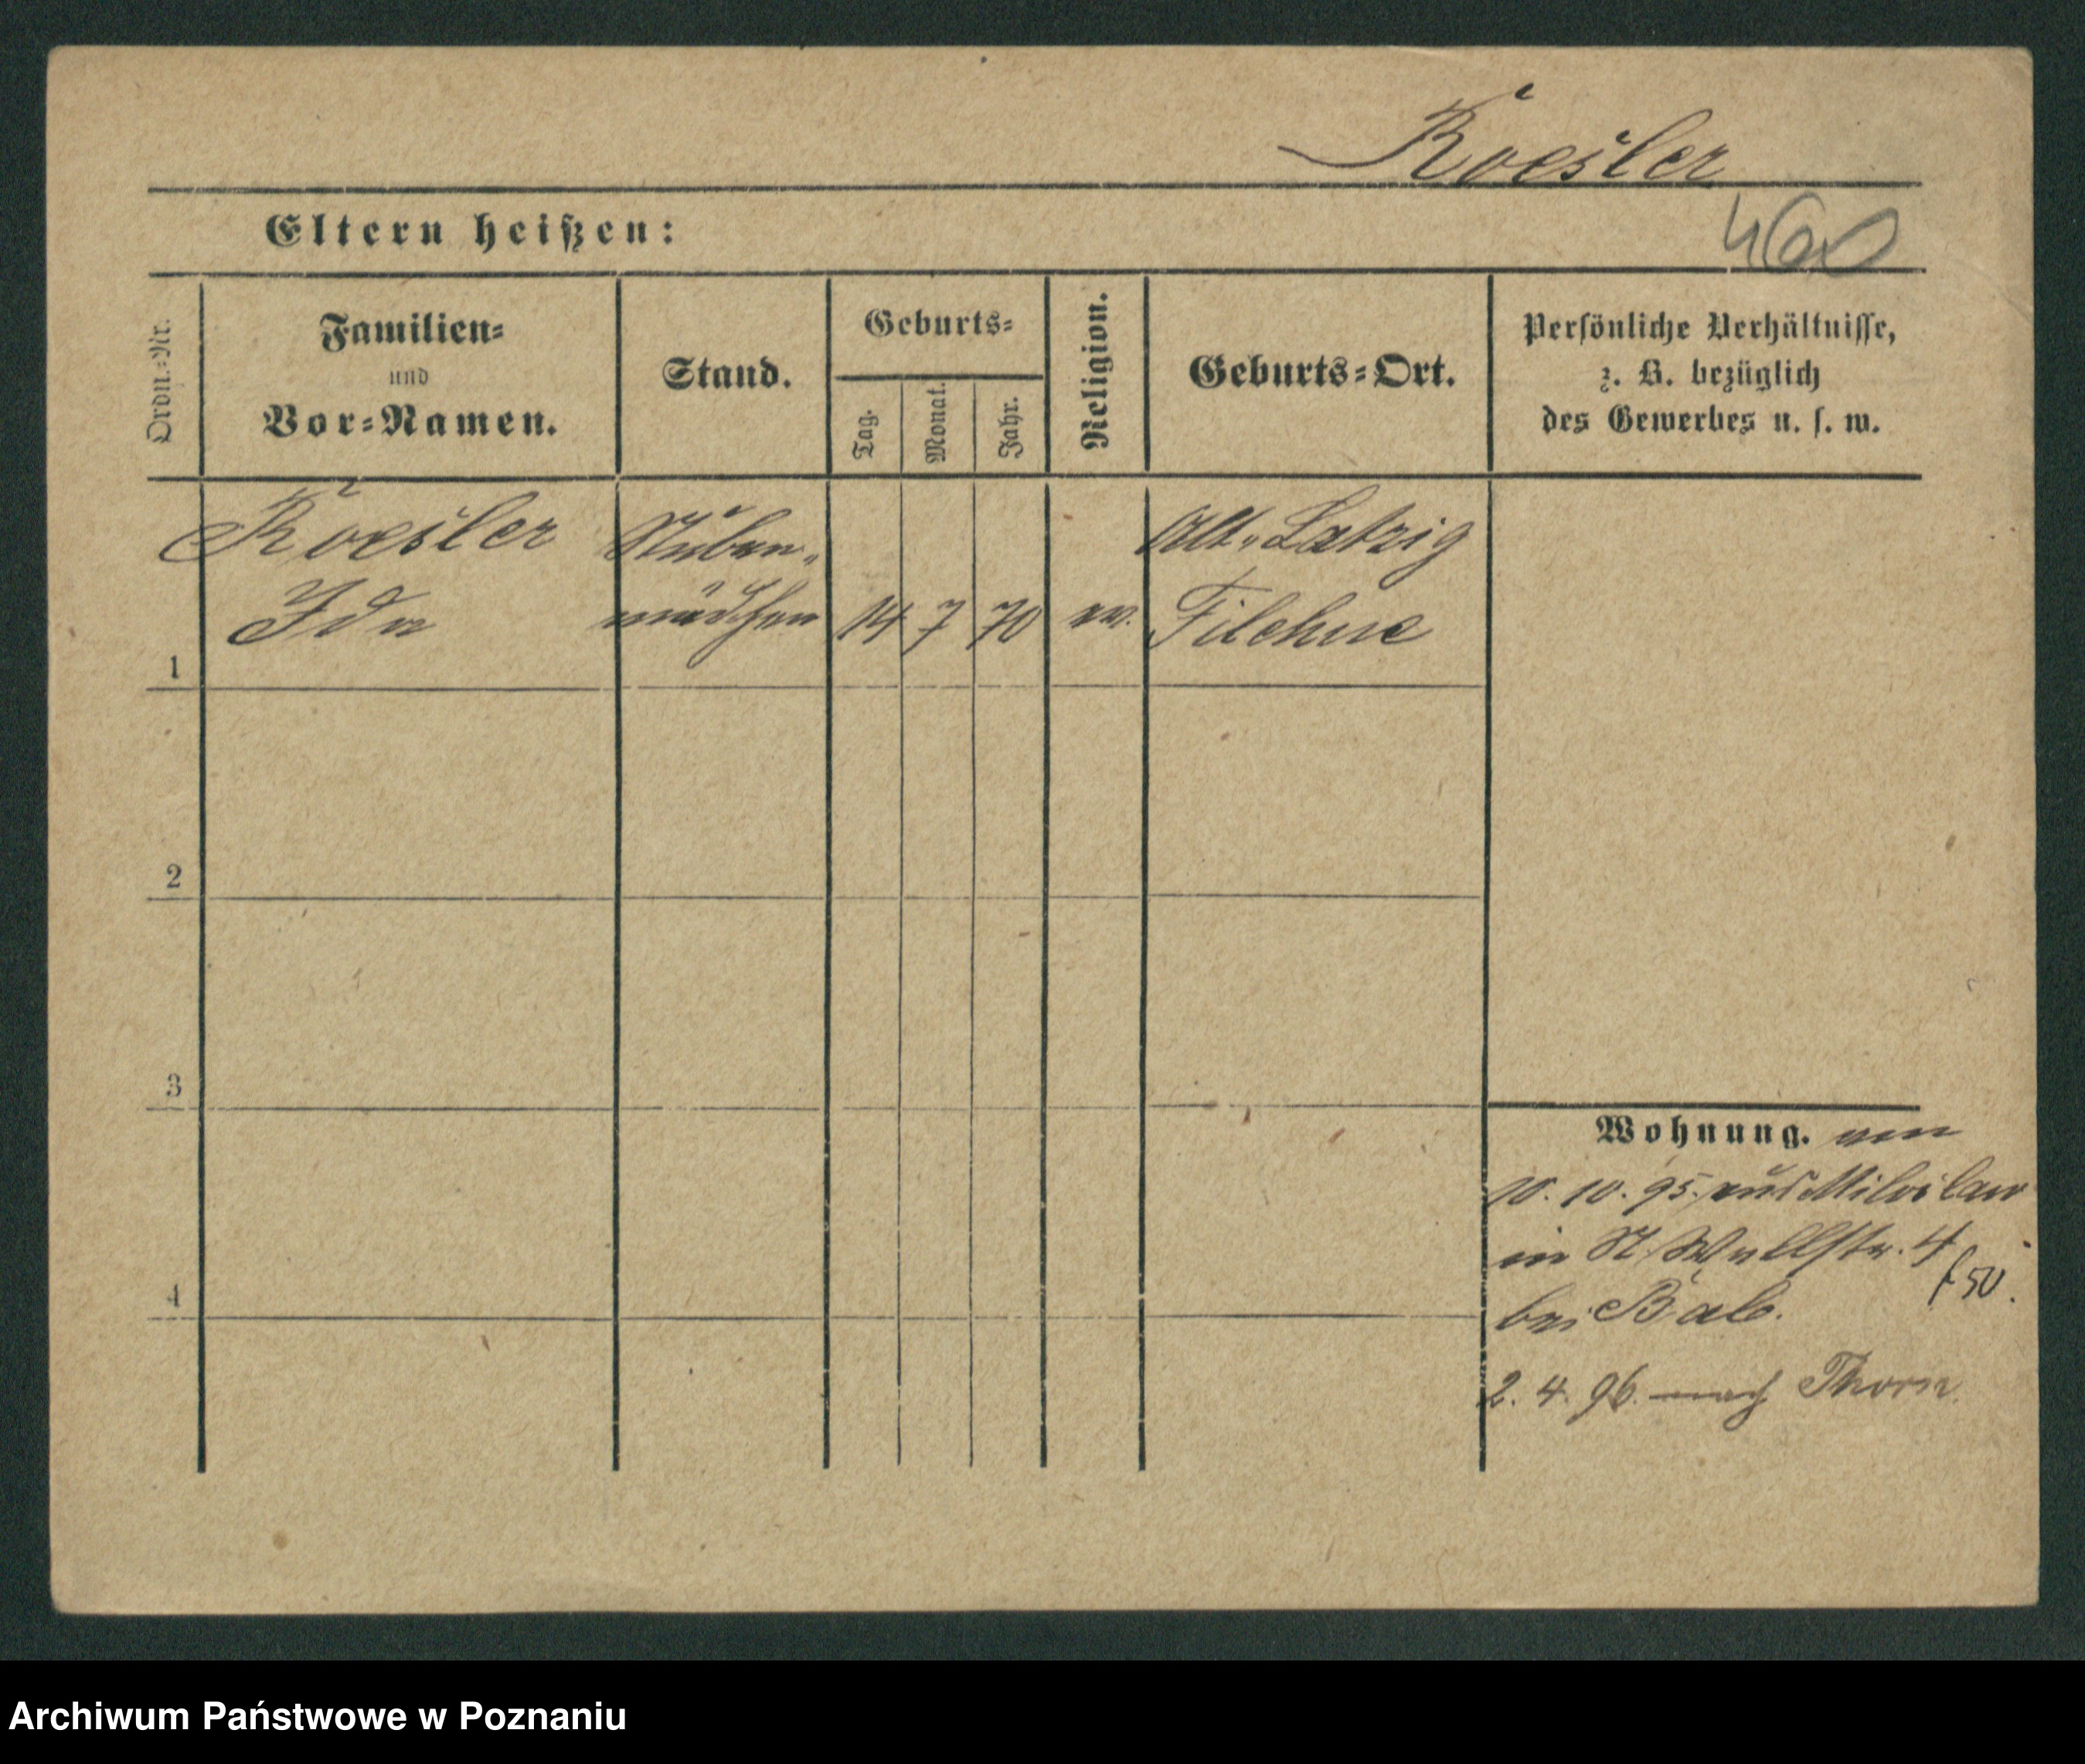 Roesler
Eltern heißen:
460
Ordn.-Nr.
Familien-
und
Vor-Namen.
Stand.
Geburts-
Tag.
Monat.
Jahr.
Religion.
Geburts-Ort.
Persönliche Verhältnisse,
z. B. bezüglich
des Gewerbes u. s. w.
Roesler Stuben- Alt-Latzig
Ida mädchen 14 7 70 ev. Filehne
1
2
3
4
Wohnung. am
10. 10. 95. aus Miloslaw
in St. Wallstr. 4
50.
bei Bab.
2. 4. 96. nach Thorn
Archiwum Państwowe w Poznaniu